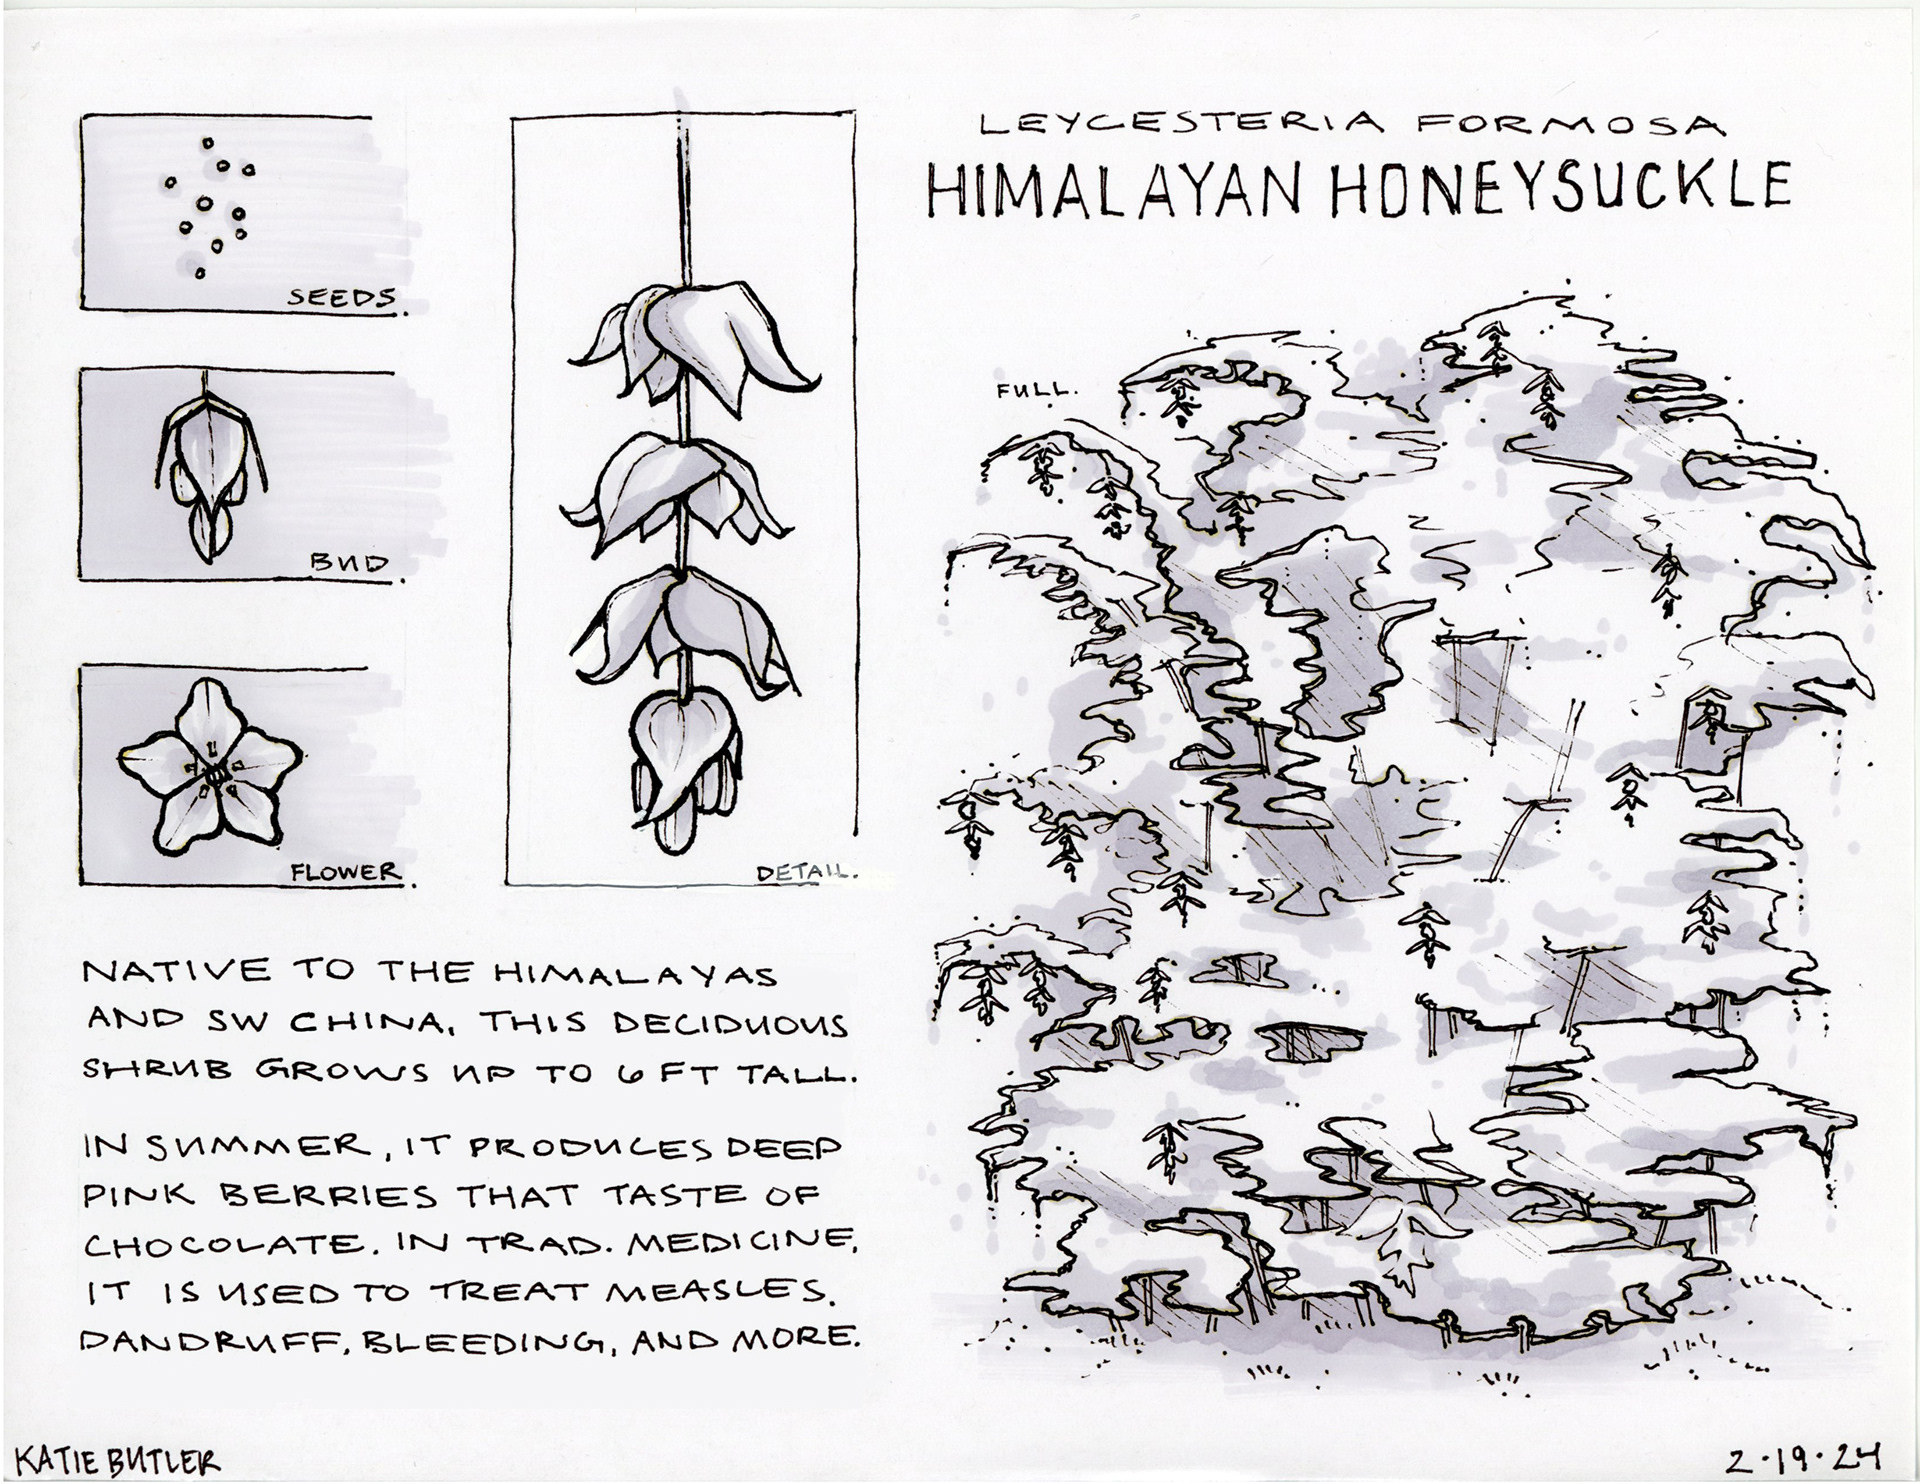 LEYCESTERIA FORMOSA
HIMALAYAN HONEYSUCKLE
SEEDS.
BUD.
FLOWER.
DETAIL.
FULL.
NATIVE TO THE HIMALAYAS
AND SW CHINA, THIS DECIDUOUS
SHRUB GROWS UP TO 6 FT TALL.
IN SUMMER, IT PRODUCES DEEP
PINK BERRIES THAT TASTE OF
CHOCOLATE. IN TRAD. MEDICINE,
IT IS USED TO TREAT MEASLES,
DANDRUFF, BLEEDING, AND MORE.
KATIE BUTLER
2.19.24